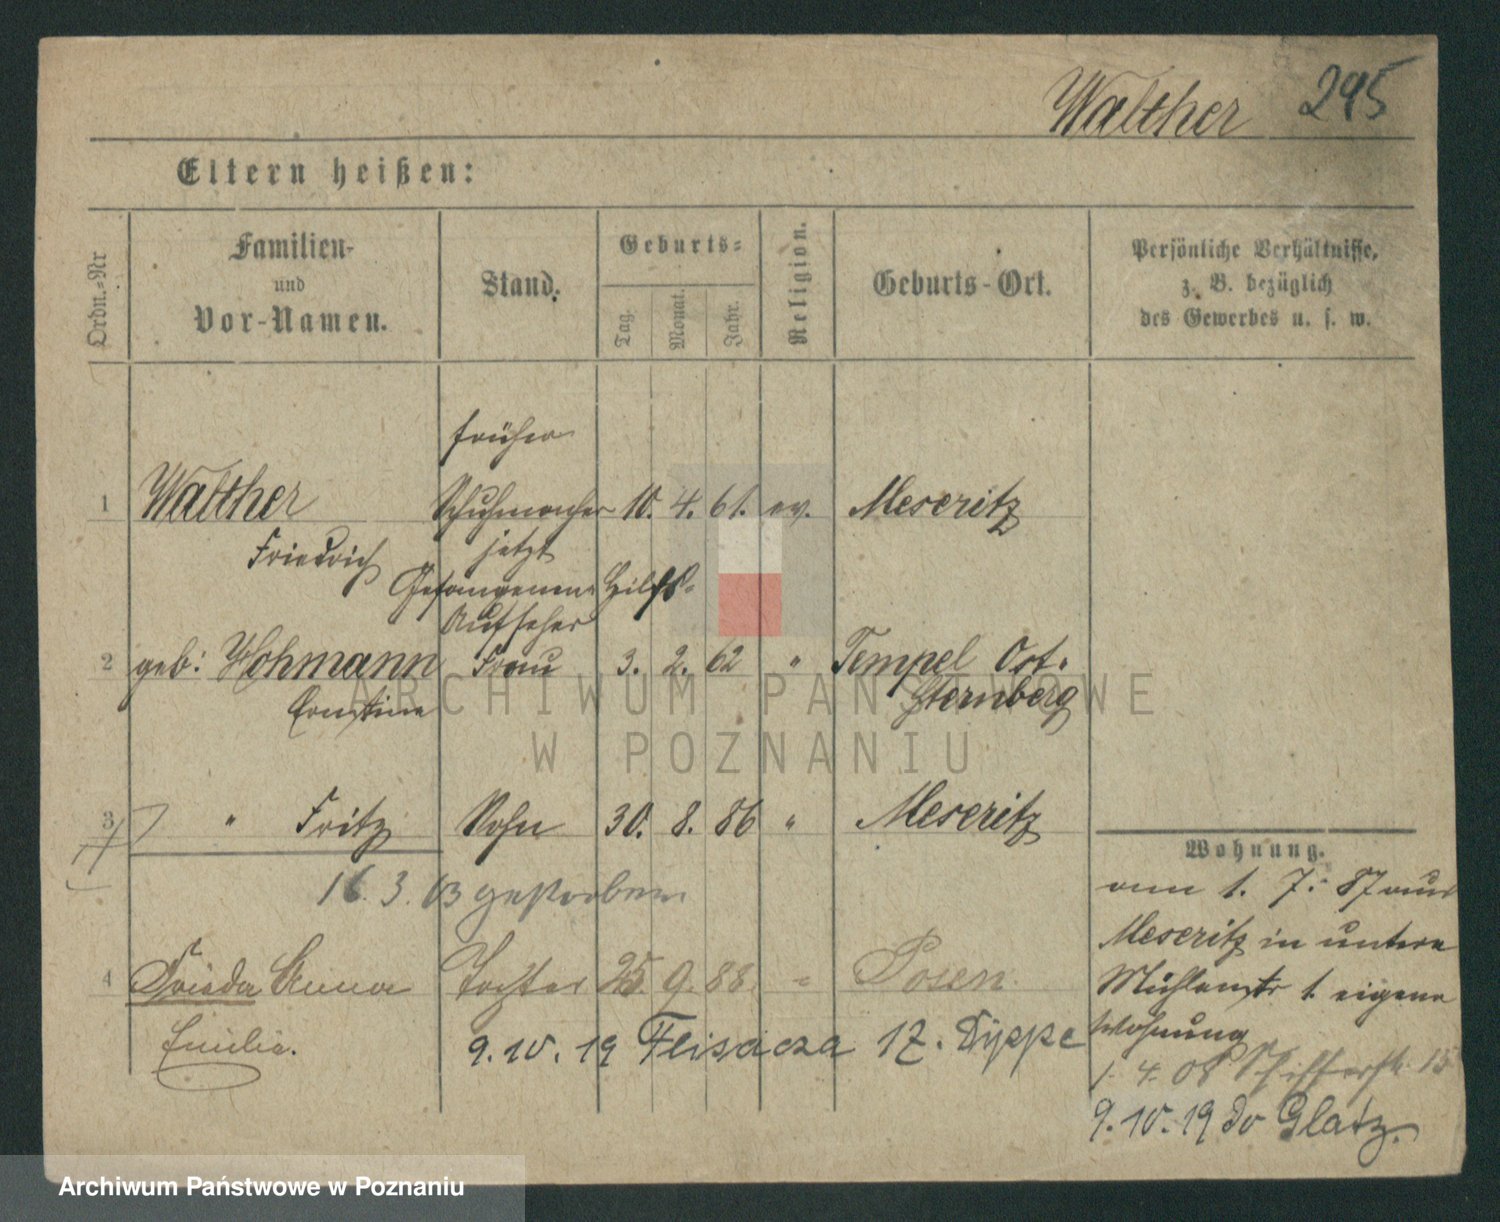 Walther 295
Eltern heißen:
Ordn.-Nr
Familien-
und
Vor-Namen.
Stand.
Geburts-
Tag.
Monat.
Jahr.
Religion.
Geburts-Ort.
Persönliche Verhältnisse,
z. B. bezüglich
des Gewerbes u. s. w.
früher
1 Walther Schuhmacher 10. 4. 61. ev. Meseritz
Friedrich jetzt
Gefangenen Hilfs-
Aufseher
2 geb: Hohmann Frau 3. 2. 62 " Tempel Ost.
Ernstine Sternberg
3 " Fritz Sohn 30. 8. 86 " Meseritz
16. 3. 03 gestorben
4 Frieda Anna Tochter 25. 9. 88 " Posen
Emilie.
9. 10. 19 Flisacza 17. Dyppe
Wohnung.
am 1. 7. 87 aus
Meseritz in untere
Mühlenstr 1. eigene
Wohnung
1. 4. 08 Schifferstr. 15
9. 10. 19 do Glatz.
ARCHIWUM PAŃSTWOWE
W POZNANIU
Archiwum Państwowe w Poznaniu